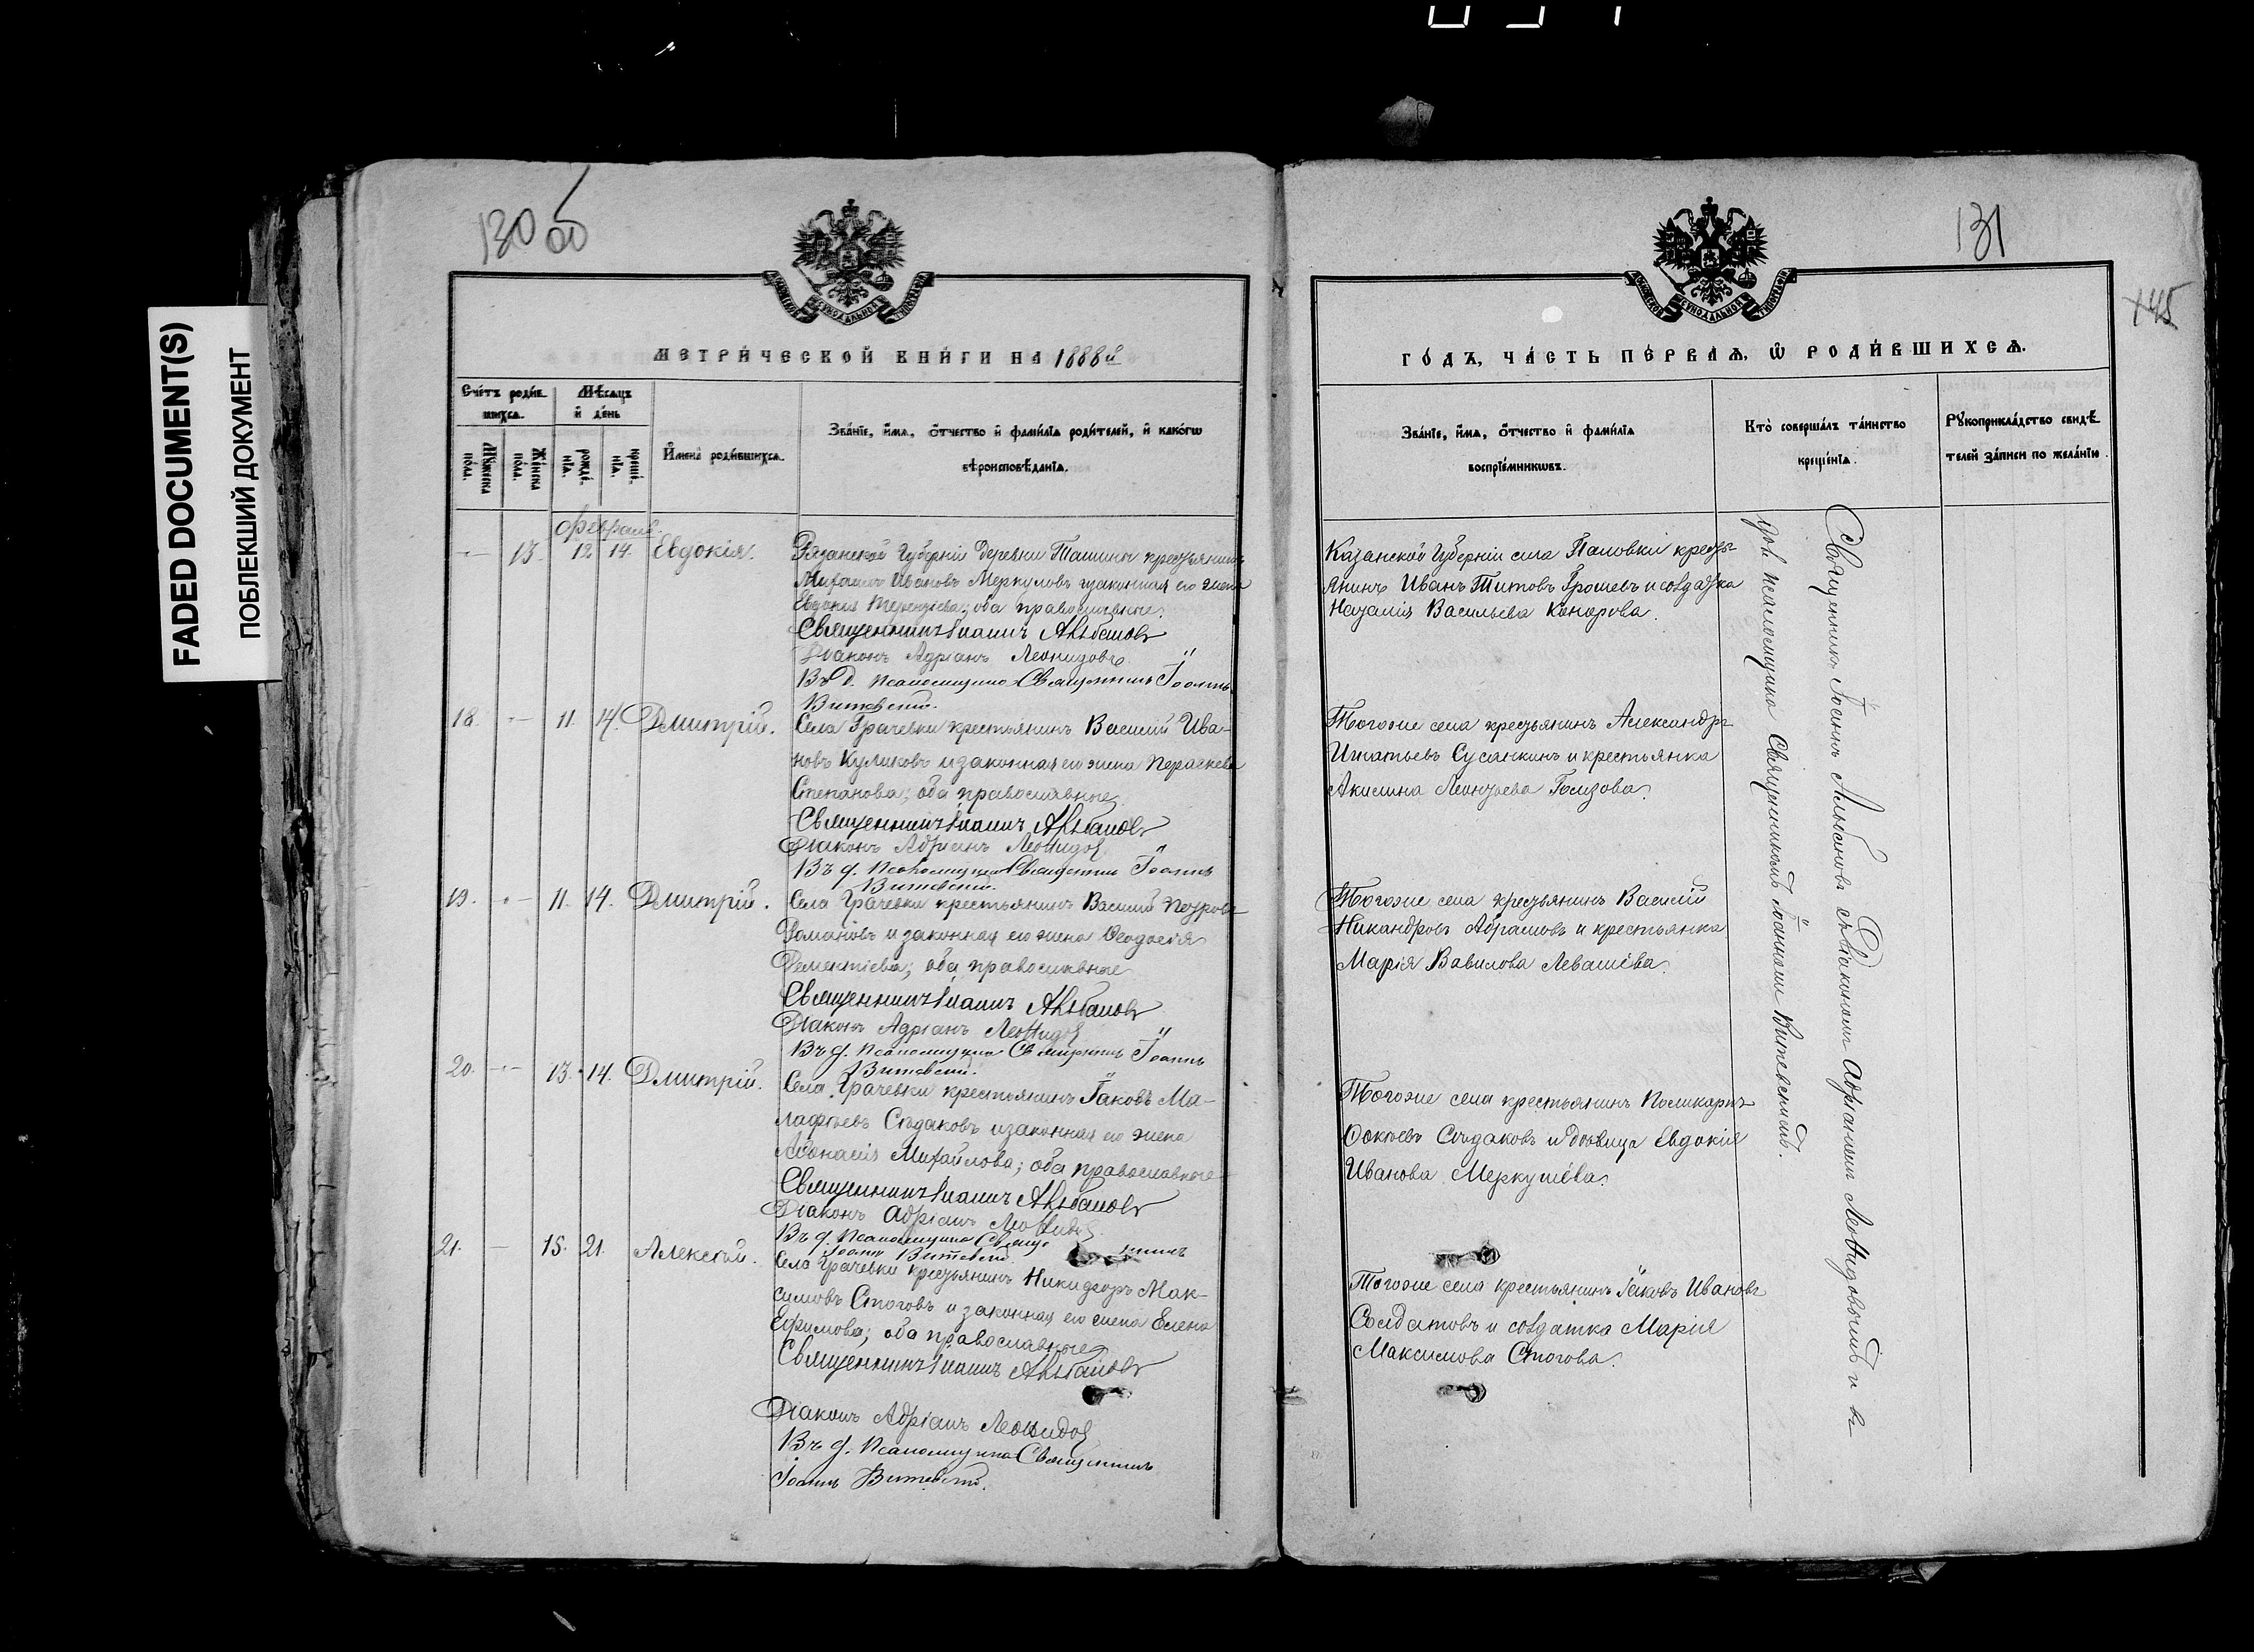 FADED DOCUMENT(S)
ПОБЛЕКШИЙ ДОКУМЕНТ
130 об
МЕТРИЧЕСКОЙ КНИГИ НА 1888й
Счетъ родив-
шихся.
Мѣсяцъ
и день
Мужеска
пола.
Женска
пола.
рожде-
нія.
креще-
нія.
Имена родившихся.
Званіе, имя, отчество и фамилія родителей, и какогѡ
вѣроисповѣданія.
Февраль
13. 12 14. Евдокія.
Казанской Губерніи деревни крестьянинъ
Михаилъ Ивановъ Меркуловъ и законная его жена
Евдокія Терентіева; оба православные.
Священникъ Іоаннъ Альбановъ
Діаконъ Адріанъ Леонидовъ
Въ д. псаломщика Священникъ Іоаннъ
Витевскій.
18. 11. 14. Дмитрій.
Села Грачевки крестьянинъ Василій Ива-
новъ Куликовъ и законная его жена Параскева
Степанова; оба православные.
Священникъ Іоаннъ Альбановъ
Діаконъ Адріанъ Леонидовъ
Въ д. псаломщика Священникъ Іоаннъ
Витевскій.
19. 11. 14. Дмитрій.
Села Грачевки крестьянинъ Василій Петровъ
Романовъ и законная его жена Ѳеодосія
Дементіева; оба православные
Священникъ Іоаннъ Альбановъ
Діаконъ Адріанъ Леонидовъ
Въ д. псаломщика Священникъ Іоаннъ
Витевскій.
20. 13. 14. Дмитрій.
Села Грачевки крестьянинъ Іаковъ Ма-
лафѣевъ Сѣдаковъ и законная его жена
Аѳанасія Михайлова; оба православные
Священникъ Іоаннъ Альбановъ
Діаконъ Адріанъ Леонидовъ
Въ д. псаломщика Священникъ
Іоаннъ Витевскій.
21. 15. 21. Алексѣй.
Села Грачевки крестьянинъ Никифоръ Мак-
симовъ Стоговъ и законная его жена Елена
Ефимова; оба православные
Священникъ Іоаннъ Альбановъ
Діаконъ Адріанъ Леонидовъ
Въ д. псаломщика Священникъ
Іоаннъ Витевскій.
131
145
ГОДЪ, ЧАСТЬ ПЕРВАЯ, Ѡ РОДИВШИХСЯ.
Званіе, имя, отчество и фамилія
воспріемникѡвъ.
Кто совершалъ таинство
крещенія.
Рукоприкладство свидѣ-
телей записи по желанію
Казанской Губерніи села кресть-
янинъ Иванъ Титовъ Грошевъ и солдатка
Наталія Васильева
Тогоже села крестьянинъ Александръ
Игнатьевъ Сусанкинъ и крестьянка
Акилина Леонтьева
Тогоже села крестьянинъ Василій
Никандровъ Абрамовъ и крестьянка
Марія Вавилова Левашева.
Тогоже села крестьянинъ Поликарпъ
Сѣдаковъ и дѣвица Евдокія
Иванова Меркушева.
Тогоже села крестьянинъ Іаковъ Ивановъ
Солдатовъ и солдатка Марія
Максимова Стогова.
Священникъ Іоаннъ Альбановъ съ Діакономъ Адріаномъ Леонидовымъ и въ
дол. псаломщика Священникомъ Іоанномъ Витевскимъ.